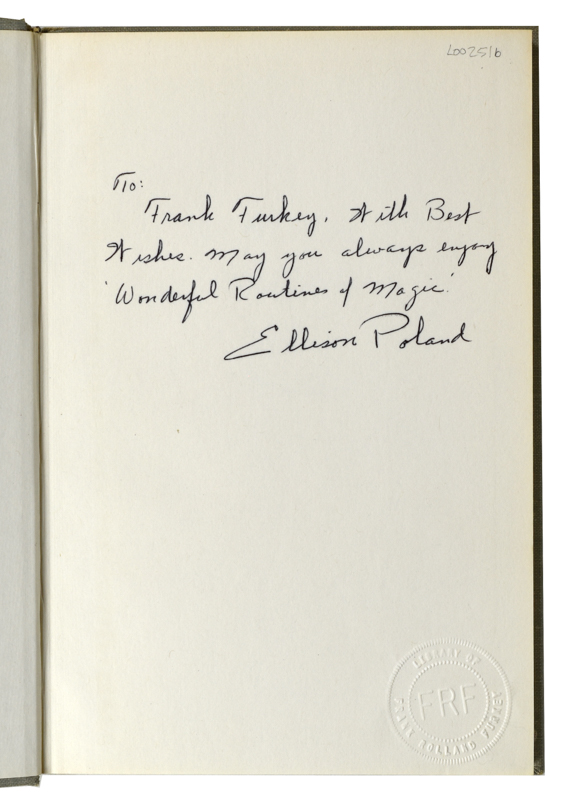 L002516
To:
Frank Furkey, With Best
Wishes. May you always enjoy
'Wonderful Routines of Magic'.
Ellison Poland
LIBRARY OF
FRF
FRANK ROLLAND FURKEY